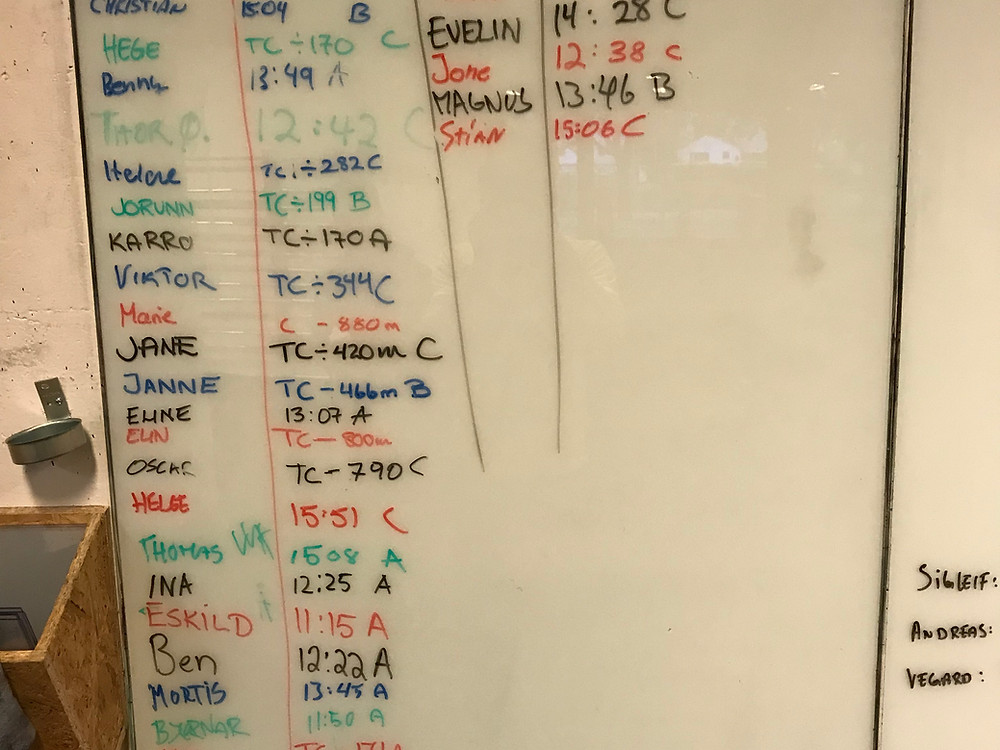 CHRISTIAN 1504 B
HEGE TC ÷170 C
Benny 13:49 A
THOR Ø. 12:42 C
Helene TC ÷282 C
JORUNN TC÷199 B
KARRO TC÷170 A
VIKTOR TC÷344 C
Marie C - 880m
JANE TC÷420m C
JANNE TC-466m B
ELINE 13:07 A
ELIN TC-800m
OSCAR TC-790 C
HELGE 15:51 C
THOMAS 1508 A
INA 12:25 A
ESKILD 11:15 A
Ben 12:22 A
MORTIS 13:45 A
BJØRNAR 11:50 A
EVELIN 14:28 C
Jone 12:38 C
MAGNUS 13:46 B
Stian 15:06 C
SIGLEIF:
ANDREAS:
VEGARD: